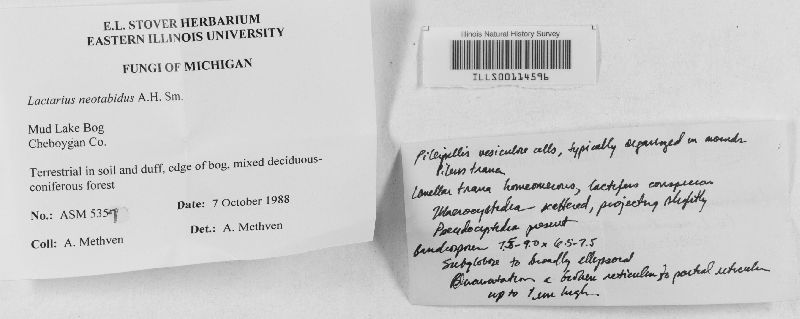 E.L. STOVER HERBARIUM
EASTERN ILLINOIS UNIVERSITY
FUNGI OF MICHIGAN
Lactarius neotabidus A.H. Sm.
Mud Lake Bog
Cheboygan Co.
Terrestrial in soil and duff, edge of bog, mixed deciduous-
coniferous forest
No.: ASM 5357
Date: 7 October 1988
Coll: A. Methven
Det.: A. Methven
Illinois Natural History Survey
ILLS00114596
Pileipellis vesiculose cells, typically organized in mounds
Pileus trama
Lamellar trama homeomerous, lactifers conspicuous
Macrocystidia - scattered, projecting slightly
Pseudocystidia present
Basidiospores 7.5-9.0 x 6.5-7.5
Subglobose to broadly ellipsoid
Ornamentation a broken reticulum to partial reticulum
up to 1 um high